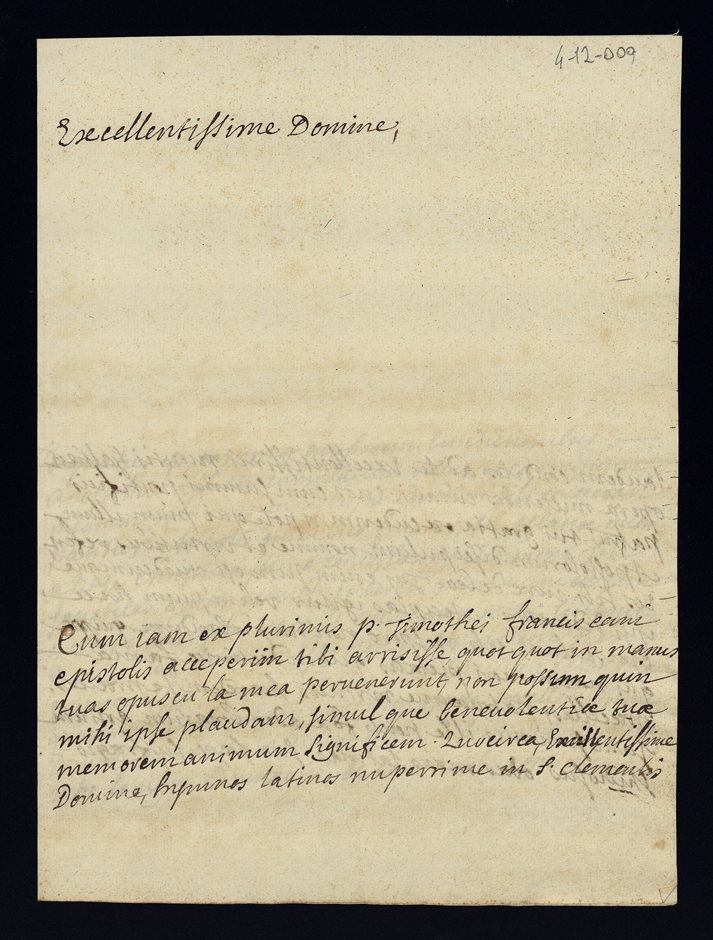 4-12-009
Excellentissime Domine,
Cum iam ex plurimis p. Timothei franciscani
epistolis acceperim tibi arrisisse quot quot in manus
tuas opuscula mea pervenerunt, non possum quin
mihi ipse plaudam, simulque benevolentiæ tuæ
memorem animum significem. Quocirca, Excellentissime
Domine, hymnos latinos nuperrime in S. Clementis